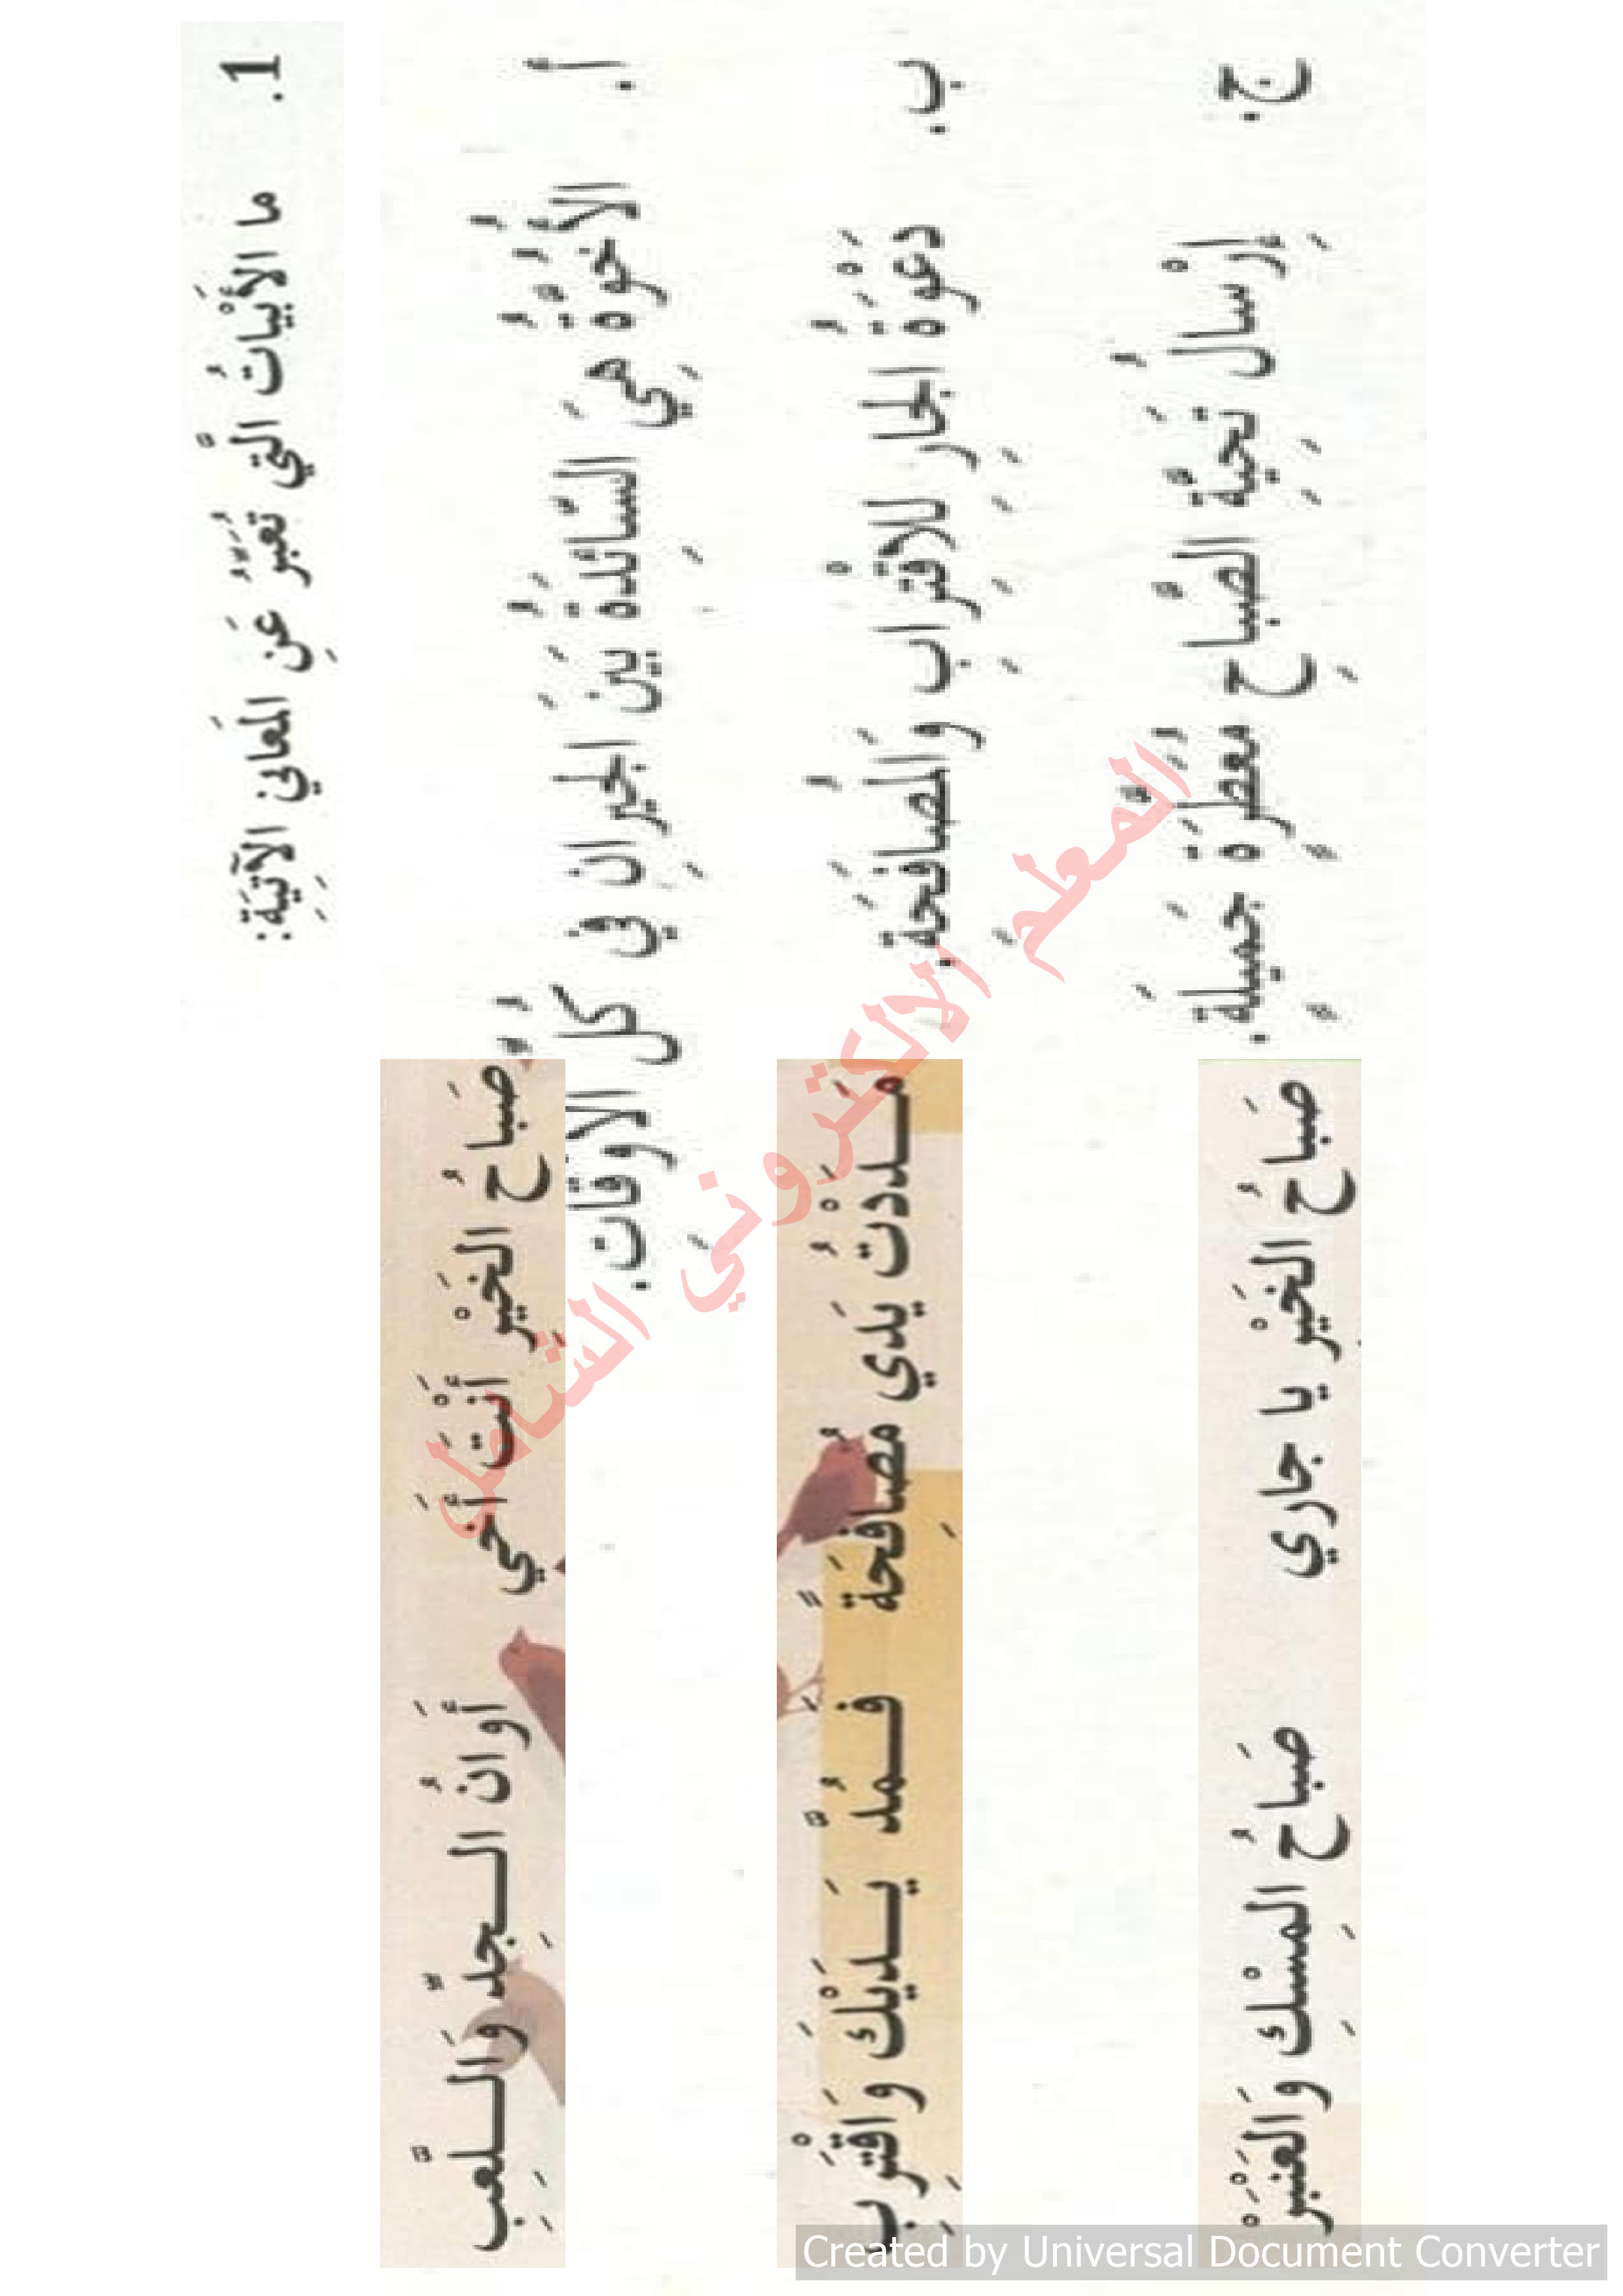 1. ما الأَبْياتُ الَّتي تُعَبِّرُ عَنِ المَعاني الآتِيَةِ:
أ. الأُخُوَّةُ هِيَ السّائِدَةُ بَيَنَ الجيرانِ في كُلِّ الأَوقاتِ.
صَباحُ الخَيْرِ أَنْتَ أَخي أَوانُ الــجِدِّ وَالــلَّعِبِ
ب. دَعْوَةُ الجارِ لِلِاقْتِرابِ وَالْمُصافَحَةِ.
مَــدَدْتُ يَدي مُصافِحَةً فَــمُدَّ يَــدَيْكَ وَاقْتَرِبِ
ج. إِرْسالُ تَحِيَّةِ الصَّباحِ مُعَطَّرَةٍ جَميلَةٍ.
صَباحُ الخَيْرِ يا جاري صَباحُ المِسْكِ وَالعَنْبَرْ
المعلم الالكتروني الشامل
Created by Universal Document Converter